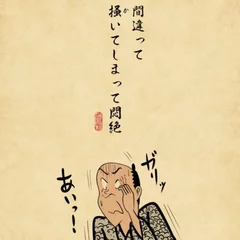 間違って
掻いてしまって悶絶
か
ガリッ
あいっ！